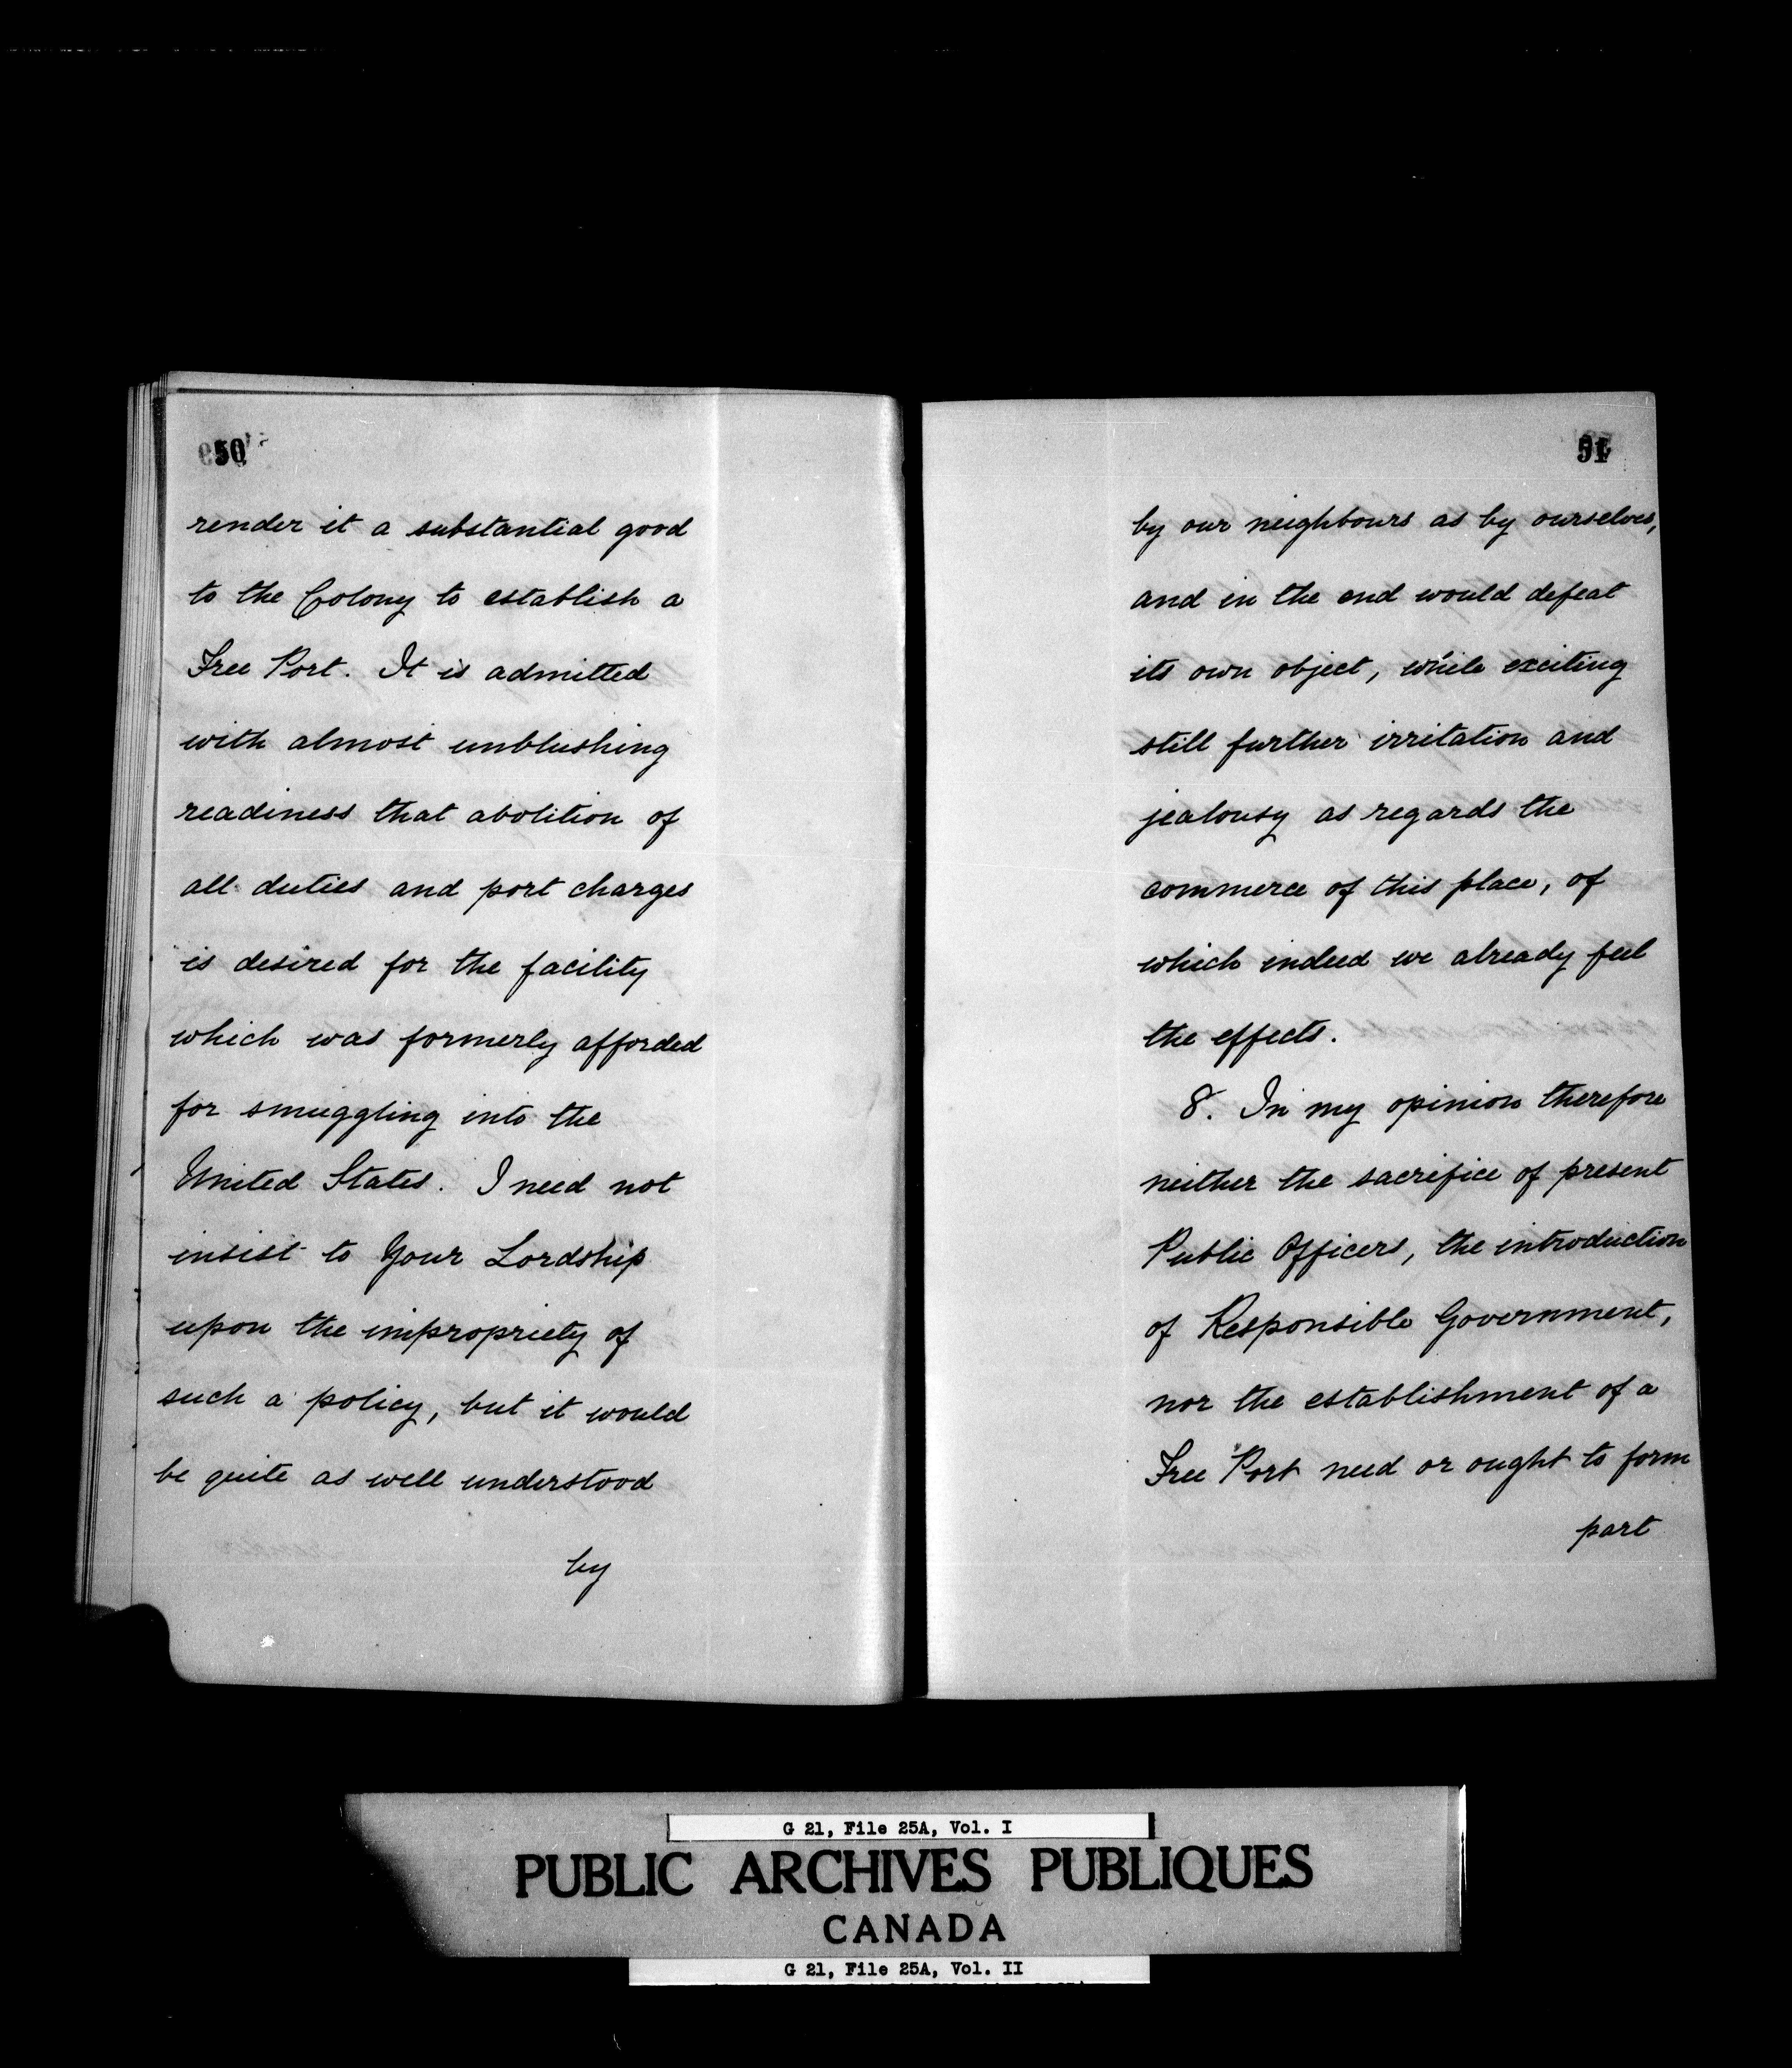 50
render it a substantial good
to the Colony to establish a
Free Port. It is admitted
with almost unblushing
readiness that abolition of
all duties and port charges
is desired for the facility
which was formerly afforded
for smuggling into the
United States. I need not
insist to Your Lordship
upon the impropriety of
such a policy, but it would
be quite as well understood
by
51
by our neighbours as by ourselves,
and in the end would defeat
its own object, while exciting
still further irritation and
jealousy as regards the
commerce of this place, of
which indeed we already feel
the effects.
8. In my opinion therefore
neither the sacrifice of present
Public Officers, the introduction
of Responsible Government,
nor the establishment of a
Free Port need or ought to form
part
G 21, File 25A, Vol. I
PUBLIC ARCHIVES PUBLIQUES
CANADA
G 21, File 25A, Vol. II